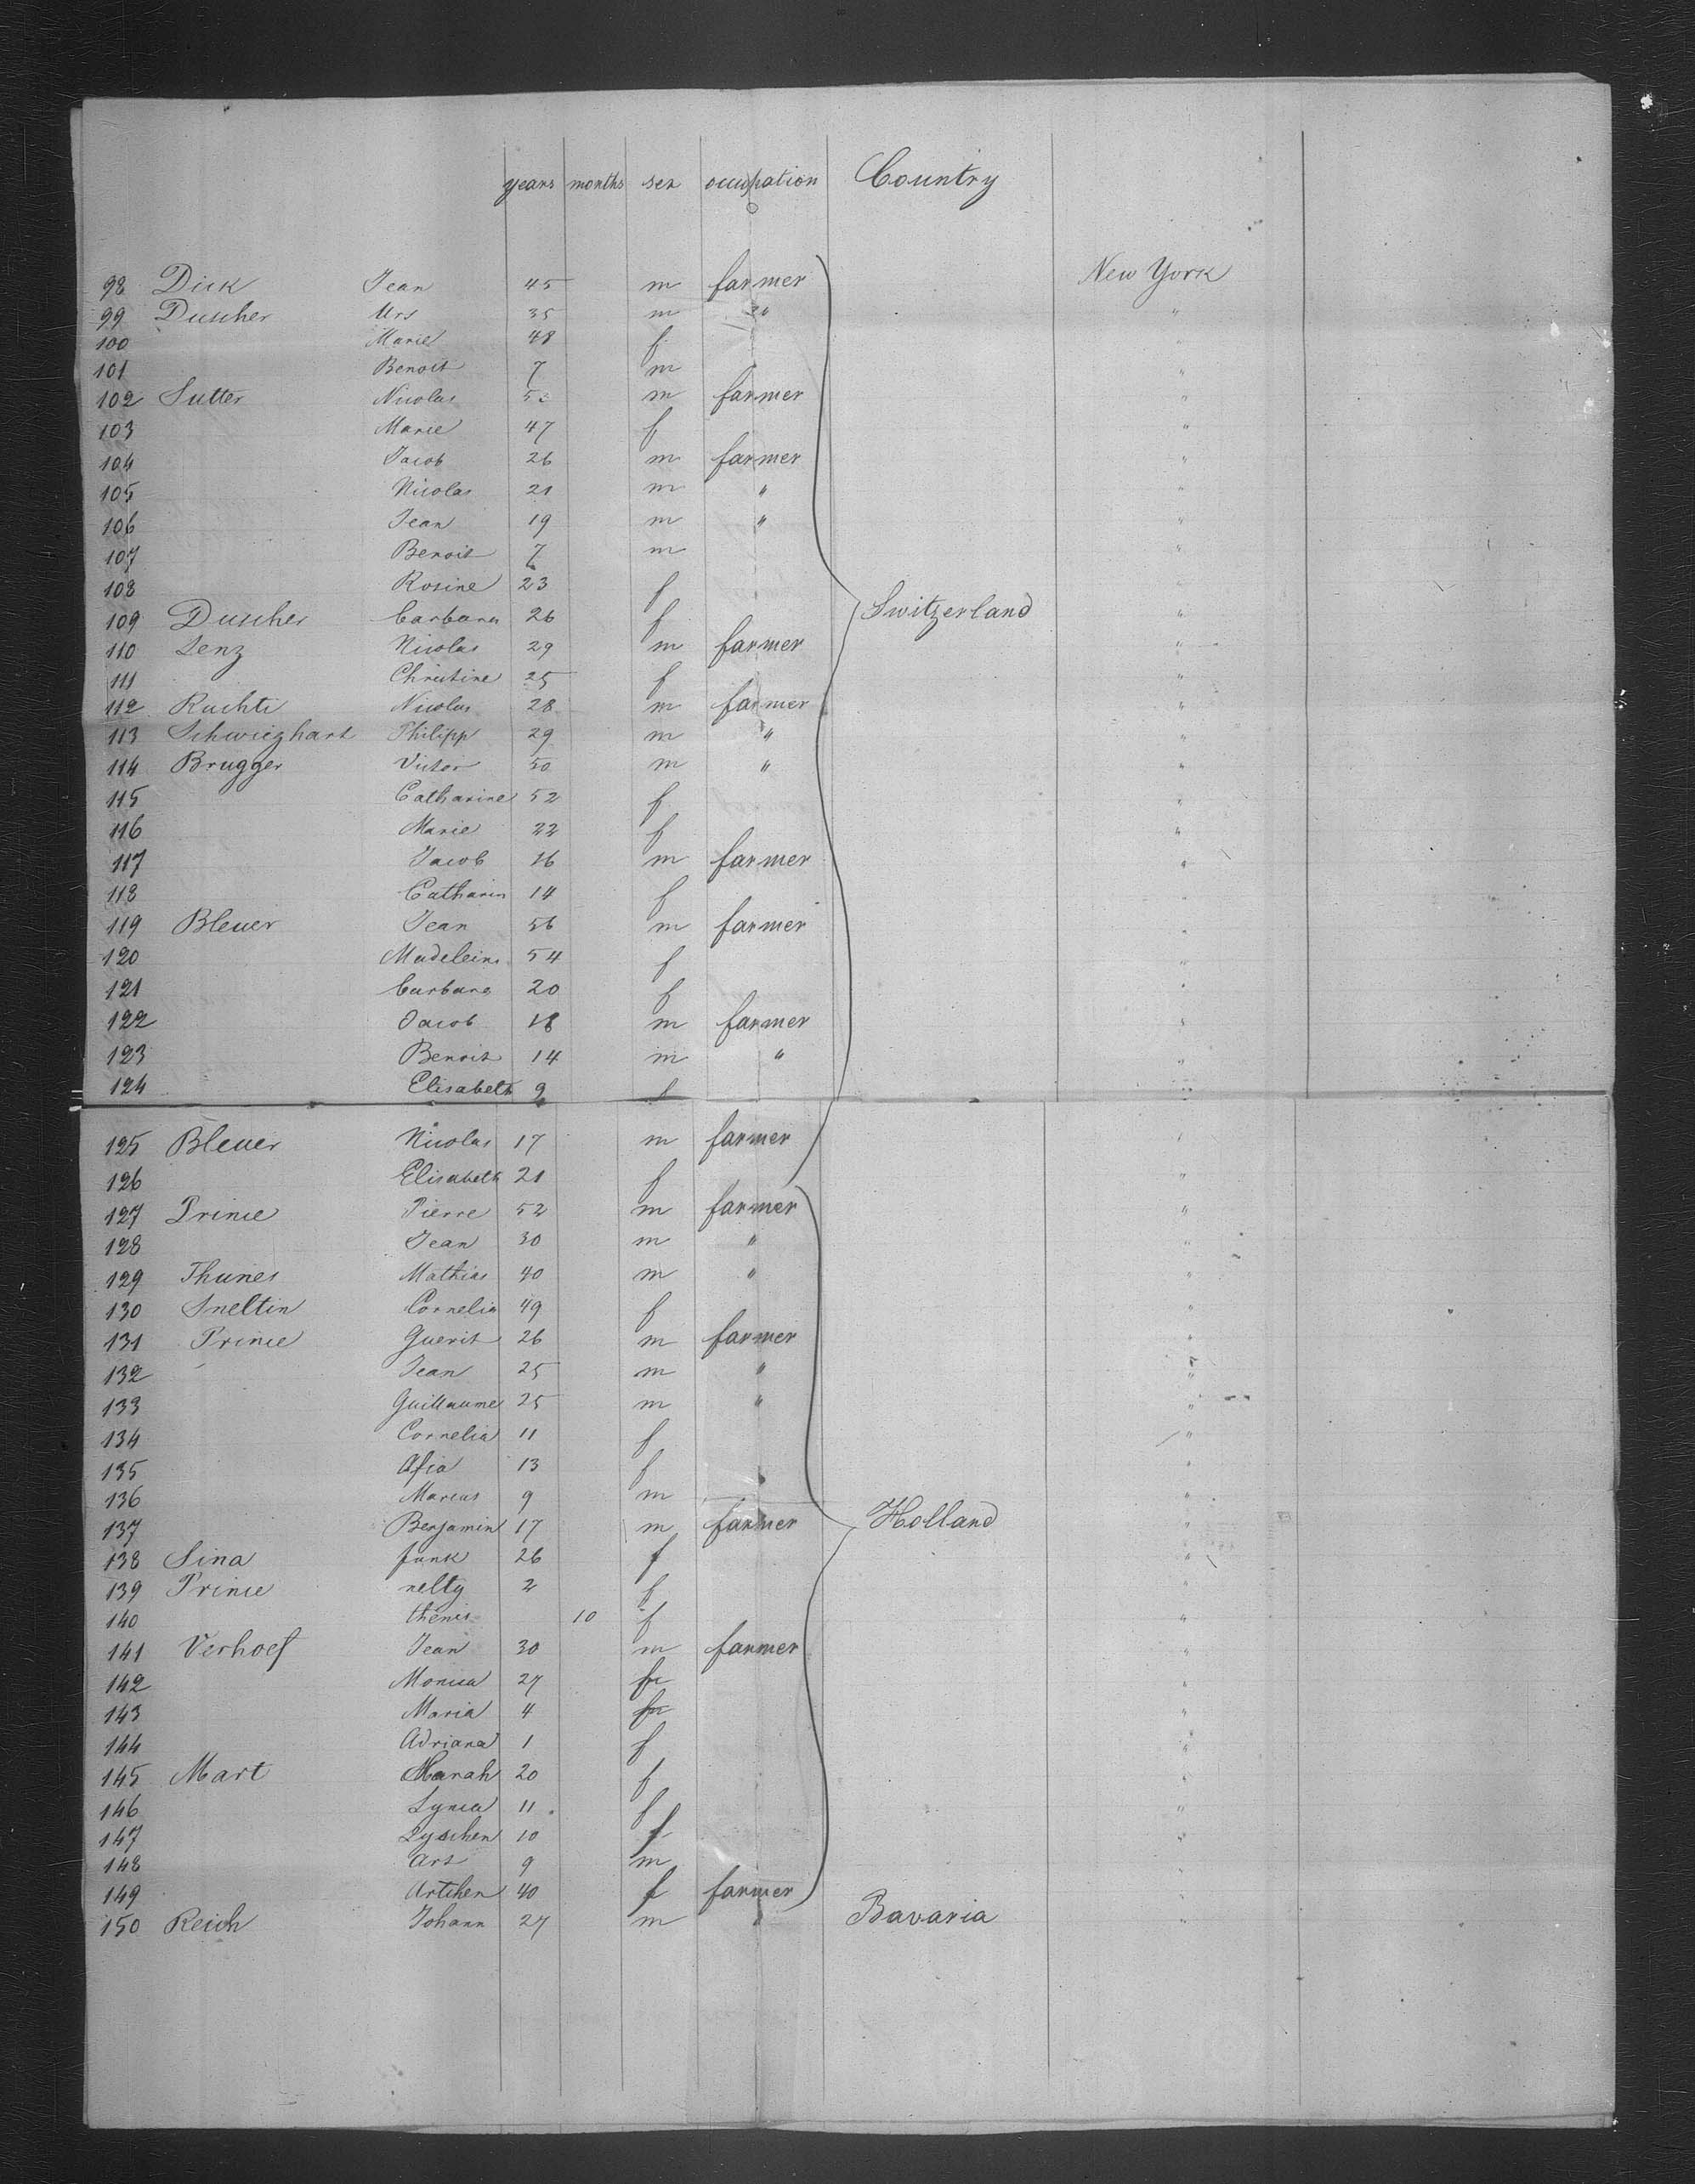 years months sex occupation Country
98 Dick Jean 45 m farmer New York
99 Duscher Urs 35 m " "
100 Marie 48 f "
101 Benoit 7 m "
102 Sutter Nicolas m farmer "
103 Marie 47 f "
104 Jacob 26 m farmer "
105 Nicolas 21 m " "
106 Jean 19 m " "
107 Benoit 7 m "
108 Rosine 23 f "
109 Duscher barbara 26 f Switzerland "
110 Lenz Nicolas 29 m farmer "
111 Christine 25 f "
112 Ruchti Nicolas 28 m farmer "
113 Schwieghart Philipp 29 m " "
114 Brugger Victor 50 m " "
115 Catharine 52 f "
116 Marie 22 f "
117 Jacob 16 m farmer "
118 Catharin 14 f "
119 Bleuer Jean 56 m farmer "
120 Madeleine 54 f "
121 barbara 20 f "
122 Jacob 18 m farmer "
123 Benoit 14 m " "
124 Elisabeth 9 f "
125 Bleuer Nicolas 17 m farmer "
126 Elisabeth 21 f "
127 Prince Pierre 52 m farmer "
128 Jean 30 m " "
129 Thunes Mathias 40 m " "
130 Sneltin Cornelia 49 f "
131 Prince Guerit 26 m farmer "
132 Jean 25 m " "
133 Guillaume 25 m " "
134 Cornelia 11 f "
135 Afia 13 f "
136 Marcus 9 m "
137 Benjamin 17 m farmer Holland "
138 Sina funk 26 f "
139 Prince nelty 2 f "
140 thenis 10 f "
141 Verhoef Jean 30 m farmer "
142 Monica 27 f "
143 Maria 4 f "
144 Adriana 1 f "
145 Mart 20 f "
146 Lynca 11 f "
147 Lyschen 10 f "
148 Art 9 m "
149 Artchen 40 f farmer "
150 Reich Johann 27 m " Bavaria "